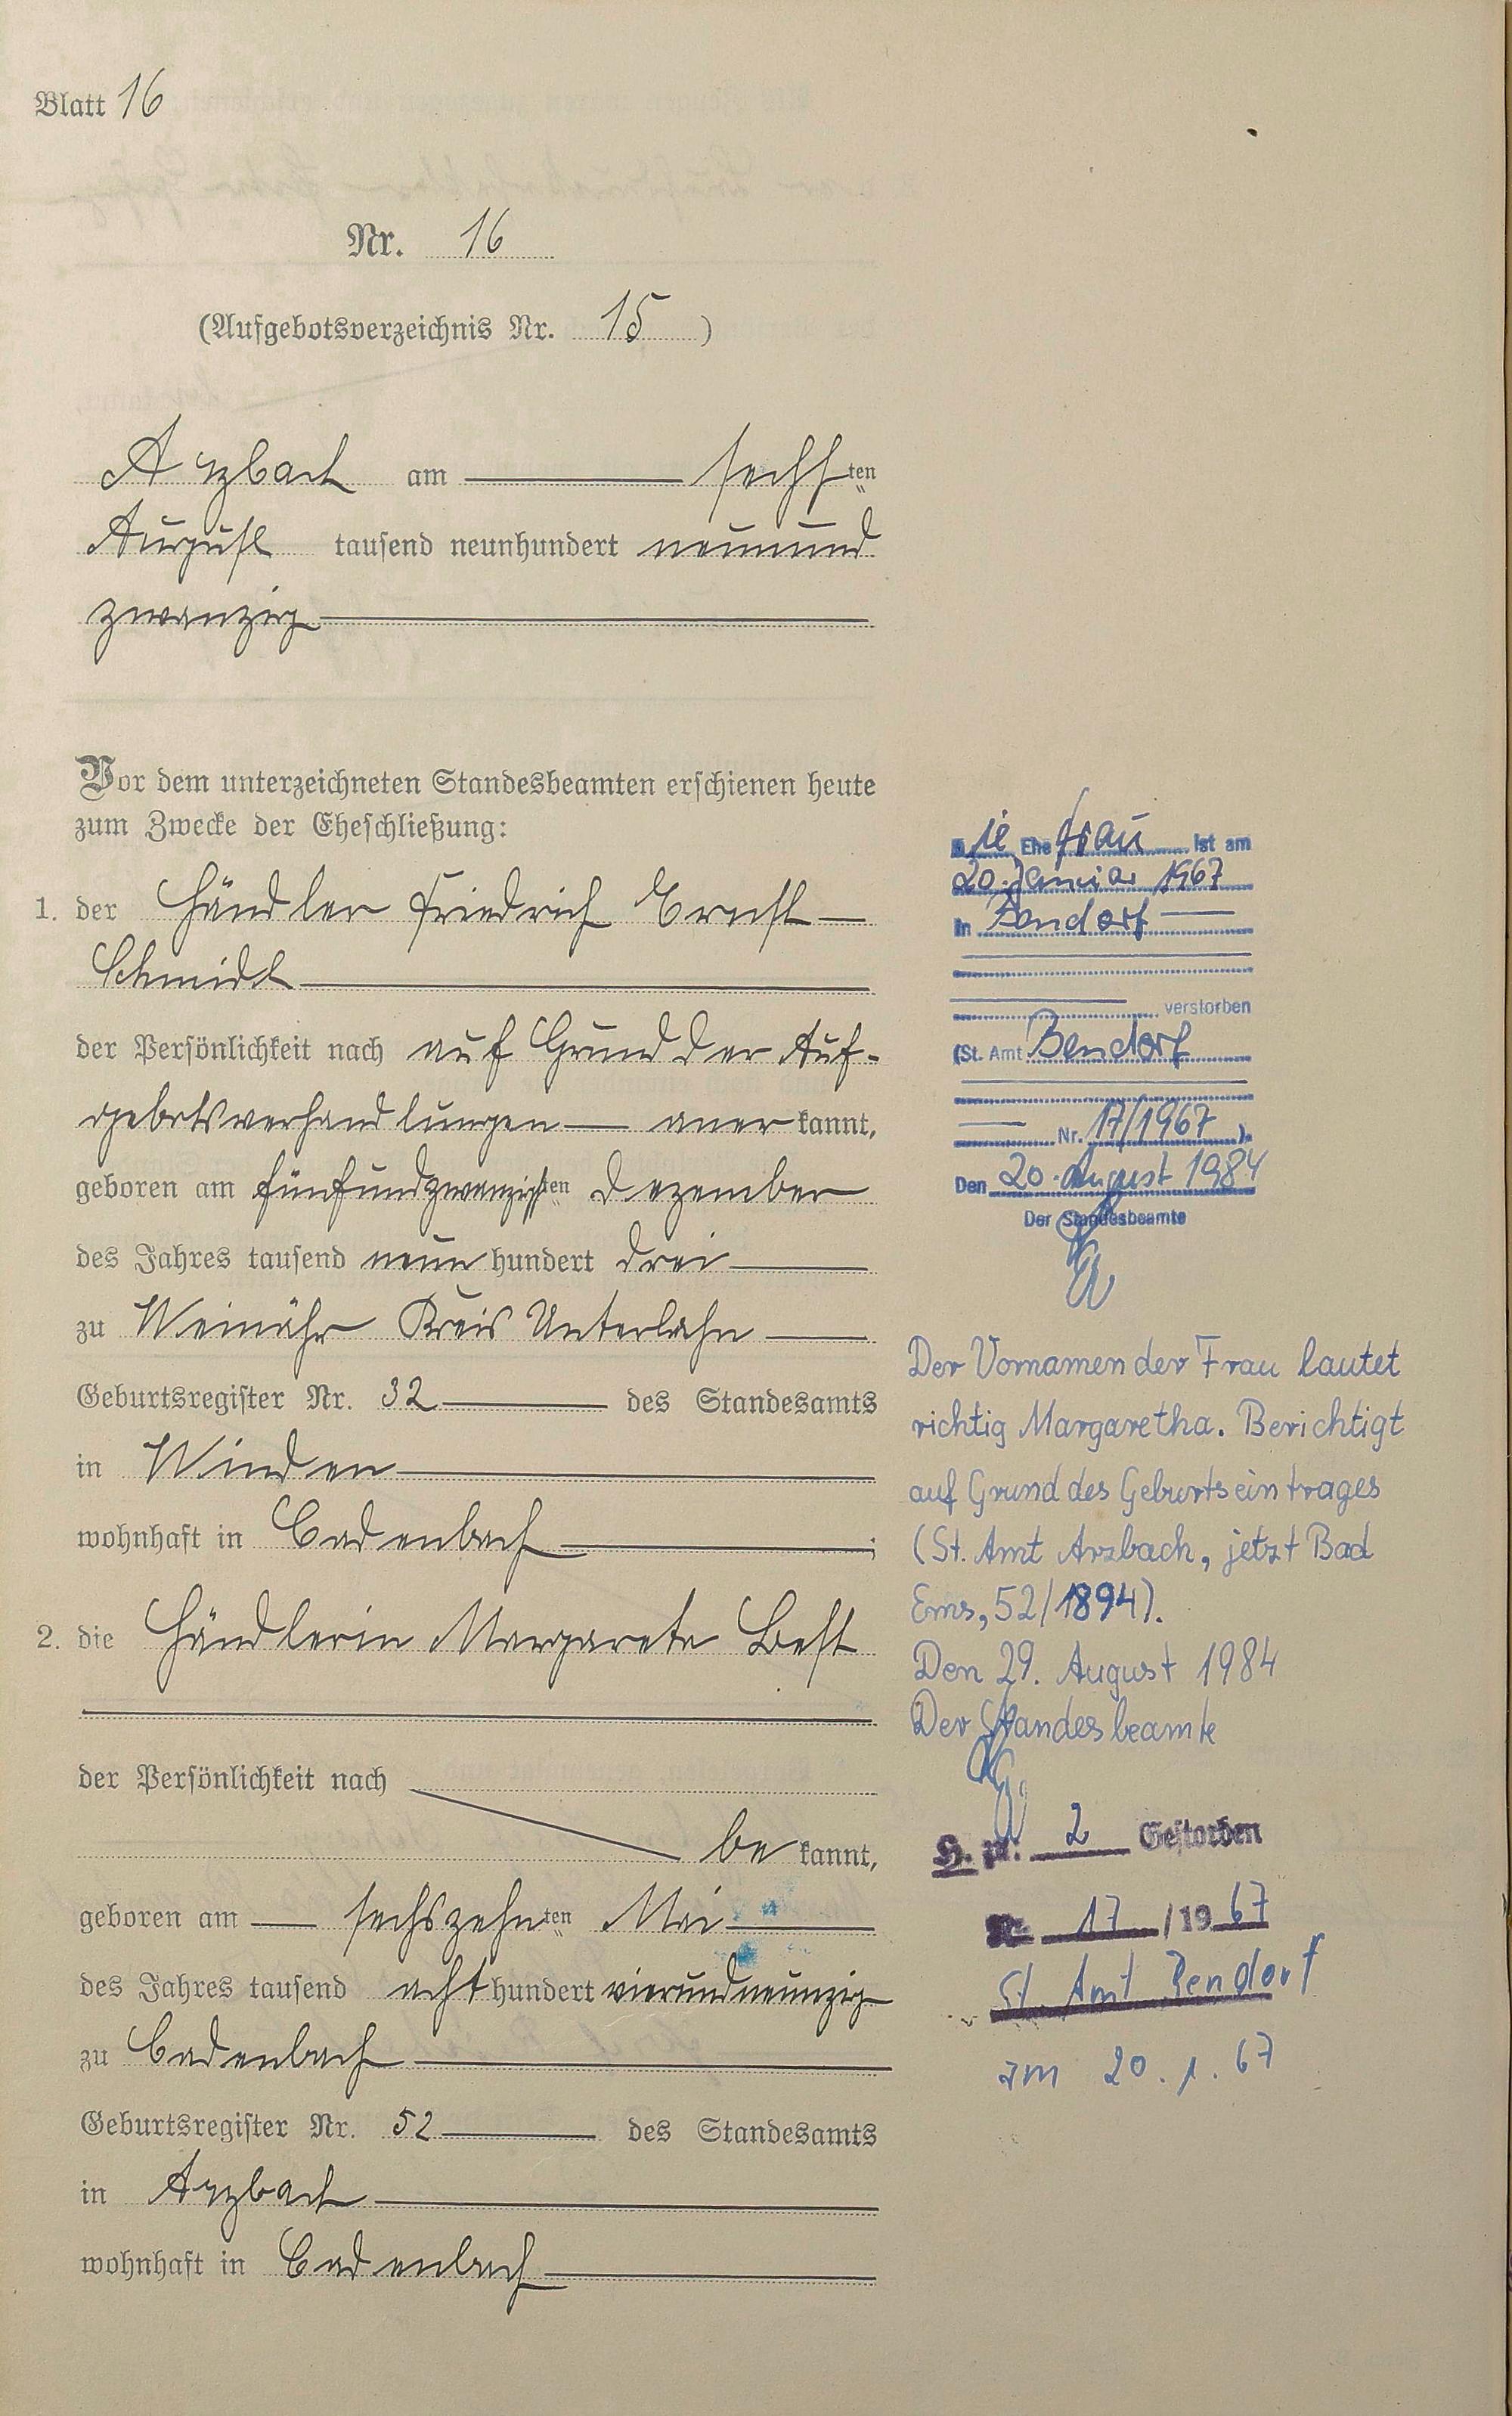 Blatt 16
Nr. 16
(Aufgebotsverzeichnis Nr. 15)
Arzbach am sechsten
August tausend neunhundert neunund
zwanzig
Vor dem unterzeichneten Standesbeamten erschienen heute
zum Zwecke der Eheschließung:
1. der Händler Friedrich Ernst
Schmidt
der Persönlichkeit nach auf Grund der Auf-
gebotsverhandlungen anerkannt,
geboren am fünfundzwanzigsten Dezember
des Jahres tausend neunhundert drei
zu Weinähr Kreis Unterlahn
Geburtsregister Nr. 32 des Standesamts
in Winden
wohnhaft in Cadenbach;
2. die Händlerin Margareta Best
der Persönlichkeit nach
bekannt,
geboren am sechszehnten Mai
des Jahres tausend achthundert vierundneunzig
zu Cadenbach
Geburtsregister Nr. 52 des Standesamts
in Arzbach
wohnhaft in Cadenbach
Die Ehefrau ist am
20. Januar 1967
in Bendorf
verstorben
(St. Amt Bendorf
Nr. 17/1967).
Den 20. August 1984
Der Standesbeamte
Der Vornamen der Frau lautet
richtig Margaretha. Berichtigt
auf Grund des Geburtseintrages
(St. Amt Arzbach, jetzt Bad
Ems, 52/1894).
Den 29. August 1984
Der Standesbeamte
2 Gestorben
Nr. 17/1967
St. Amt Bendorf
am 20.1.67